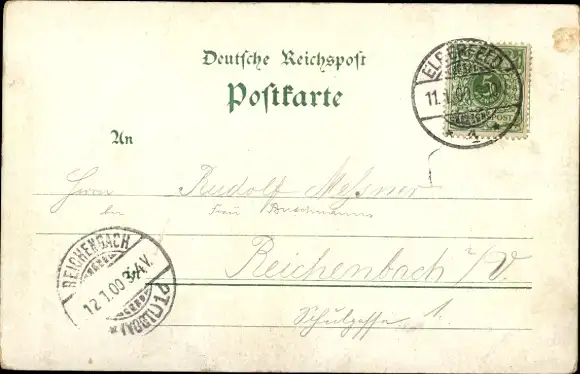 Deutsche Reichspost
Postkarte
ELBERFELD 2
11.1.00
5
POST
An
Herrn Rudolf Messner
bei Frau
Reichenbach i/V.
Schulgasse 1.
REICHENBACH
12.1.00 3-4V.
(VOGTL) 1 d